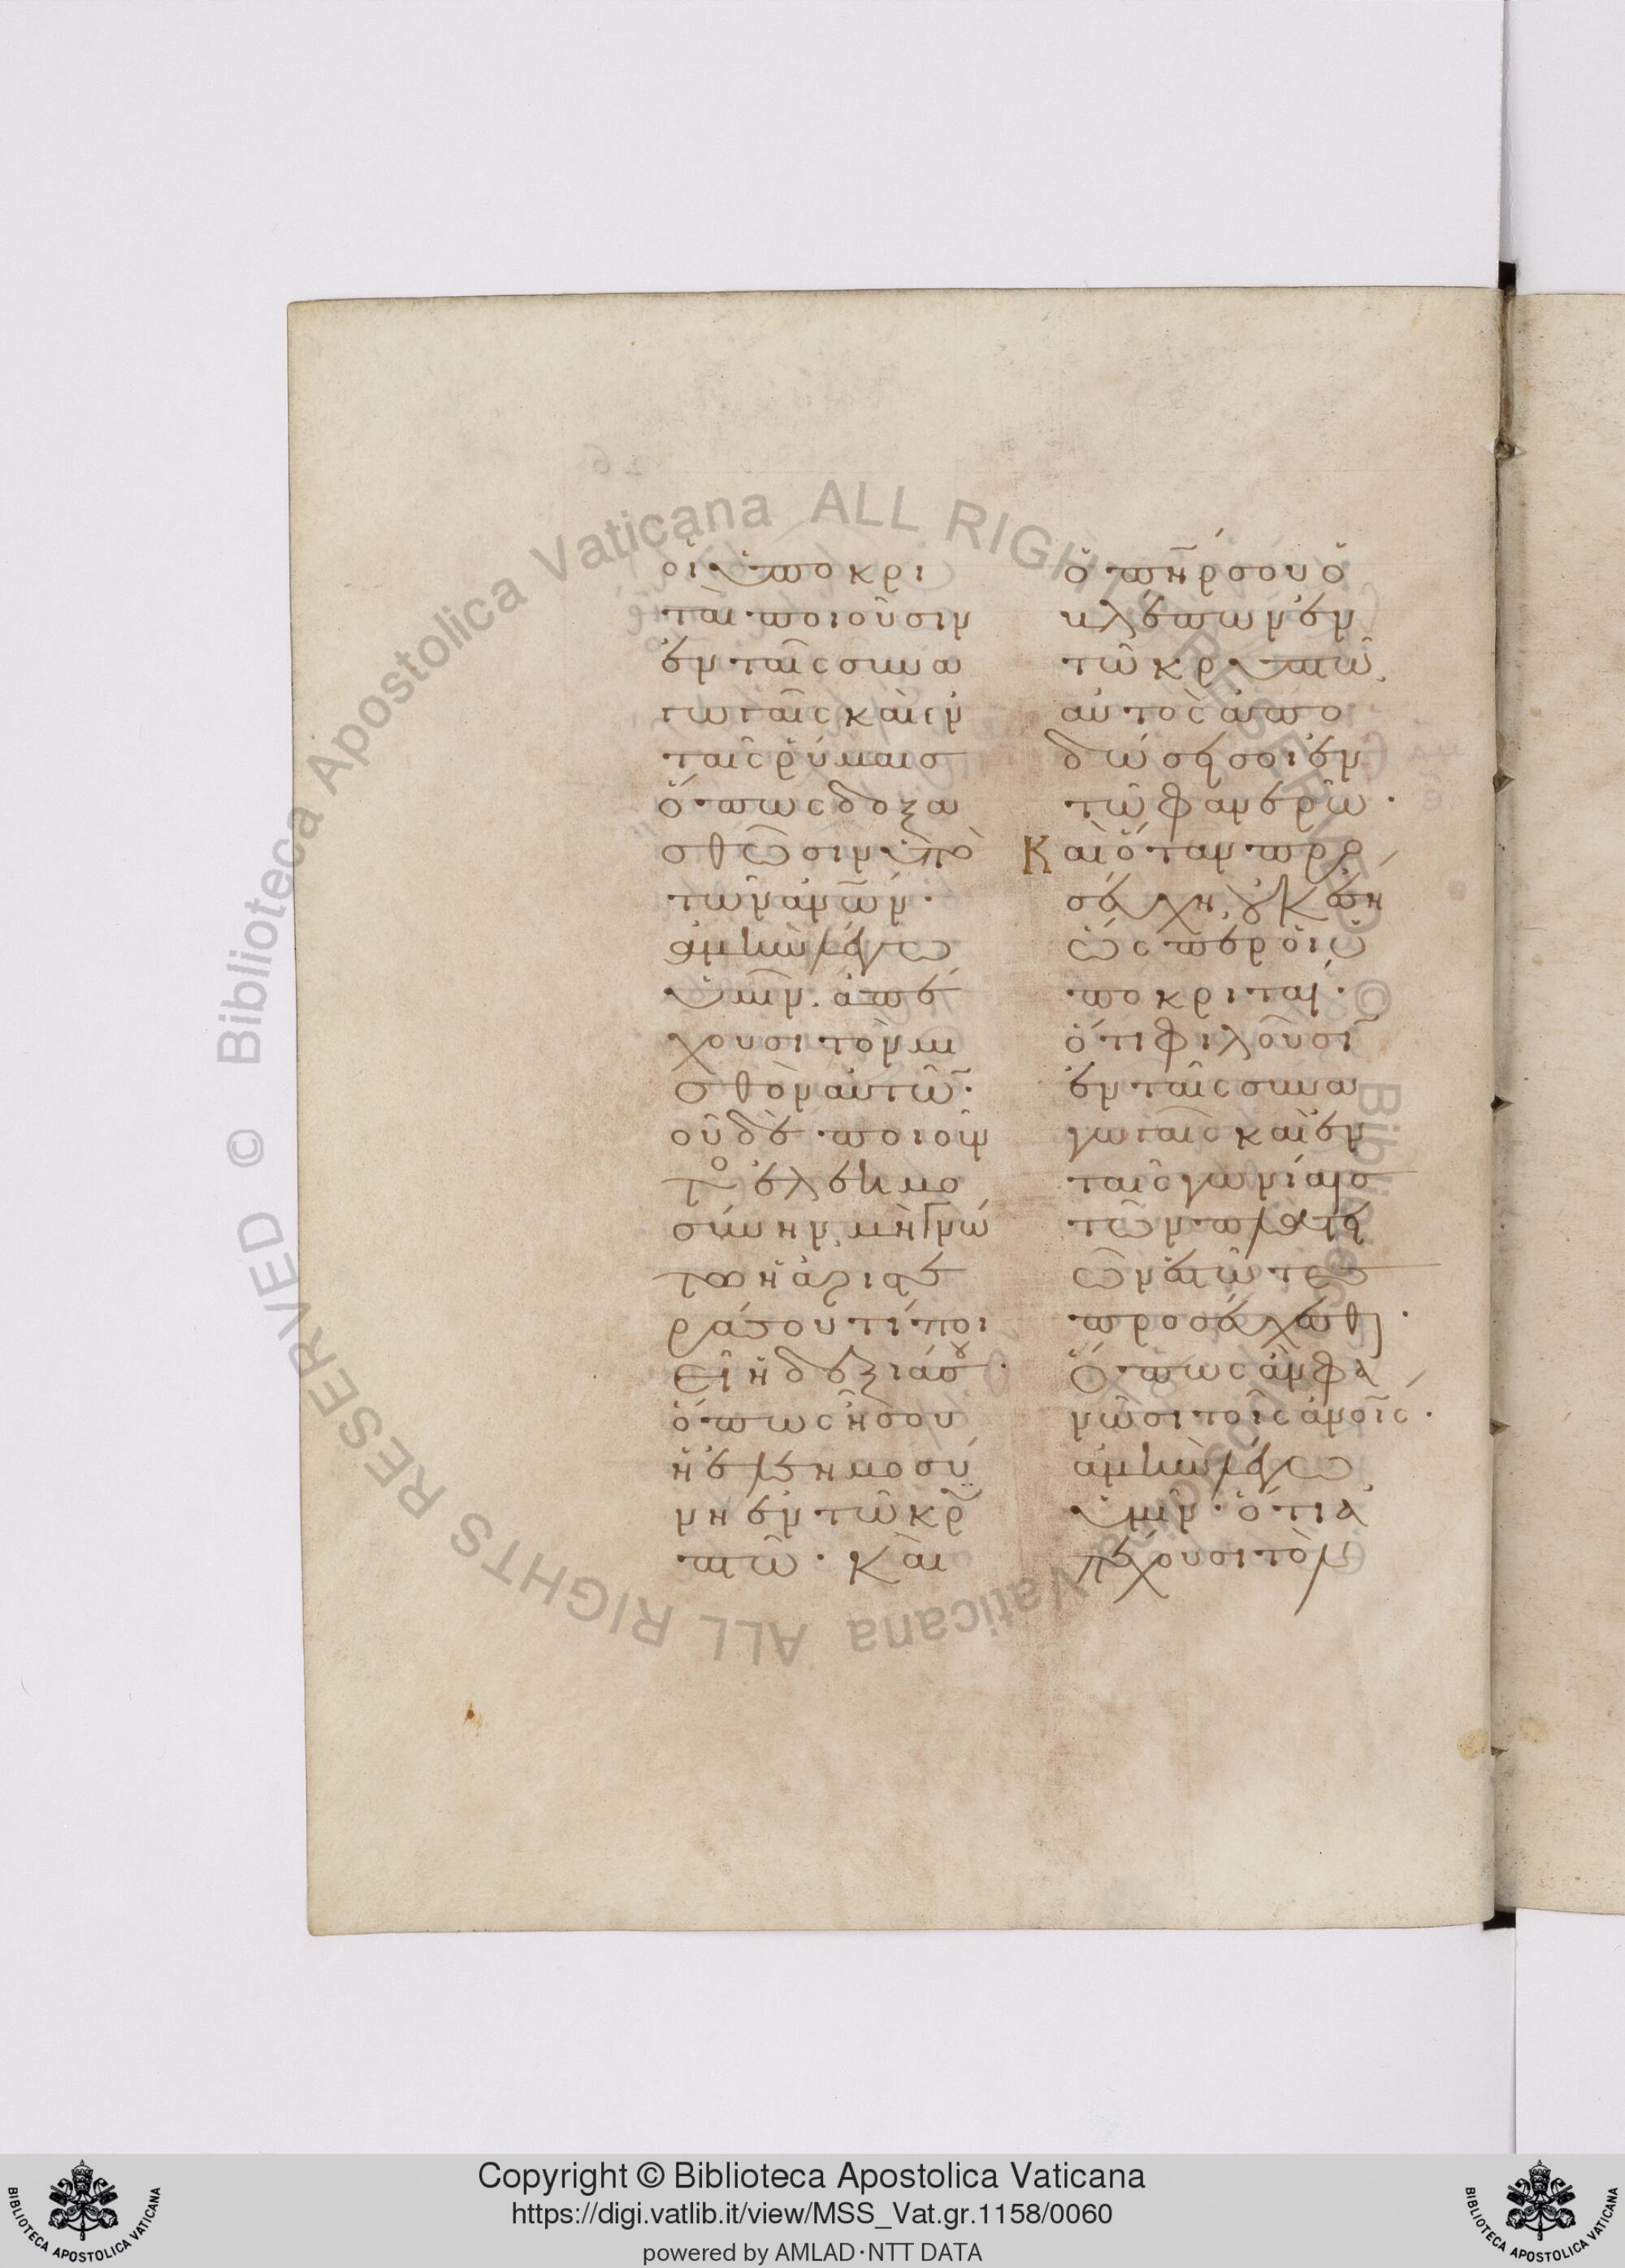 οἱ ὑποκρι
ταὶ ποιοῦσιν
ἐν ταῖς συνα
γωγαῖς καὶ ἐν
ταῖς ῥύμαισ
ὅπως δοξα
σθῶσιν ὑπὸ
τῶν ἀνῶν·
ἀμὴν λέγω
ὑμῖν· ἀπέ
χουσι τὸν μι
σθὸν αὐτῶν·
σοῦ δὲ ποιοῦν
τος ἐλεημο
σύνην, μὴ γνώ
τω ἡ ἀριστε
ρά σου τί ποι
εῖ ἡ δεξιά σου·
ὅπως ἦ σου
ἡ ἐλεημοσύ
νη ἐν τῶ κρυ
πτῶ· Καὶ
ὁ πηρ σου ὁ
βλέπων ἐν
τῶ κρυπτῶ,
αὐτὸς ἀπο
δώσει σοι ἐν
τῶ φανερῶ·
Καὶ ὅταν προσ
εύχη, οὐκ ἔση
ὥσπερ οἱ ὑ
ποκριταί·
ὅτι φιλοῦσιν
ἐν ταῖς συνα
γωγαῖς καὶ ἐν
ταῖς γωνίαισ
τῶν πλατει
ῶν ἑστῶτεσ
προσεύχεσθαι·
Ὅπως ἂν φα
νῶσι τοῖς ἀνοῖς·
ἀμὴν λέγω
ὑμῖν· ὅτι ἀ
πέχουσι τὸν
Copyright © Biblioteca Apostolica Vaticana
https://digi.vatlib.it/view/MSS_Vat.gr.1158/0060
powered by AMLAD·NTT DATA
BIBLIOTECA APOSTOLICA VATICANA
BIBLIOTECA APOSTOLICA VATICANA
© Biblioteca Apostolica Vaticana ALL RIGHTS RESERVED © Biblioteca Apostolica Vaticana ALL RIGHTS RESERVED